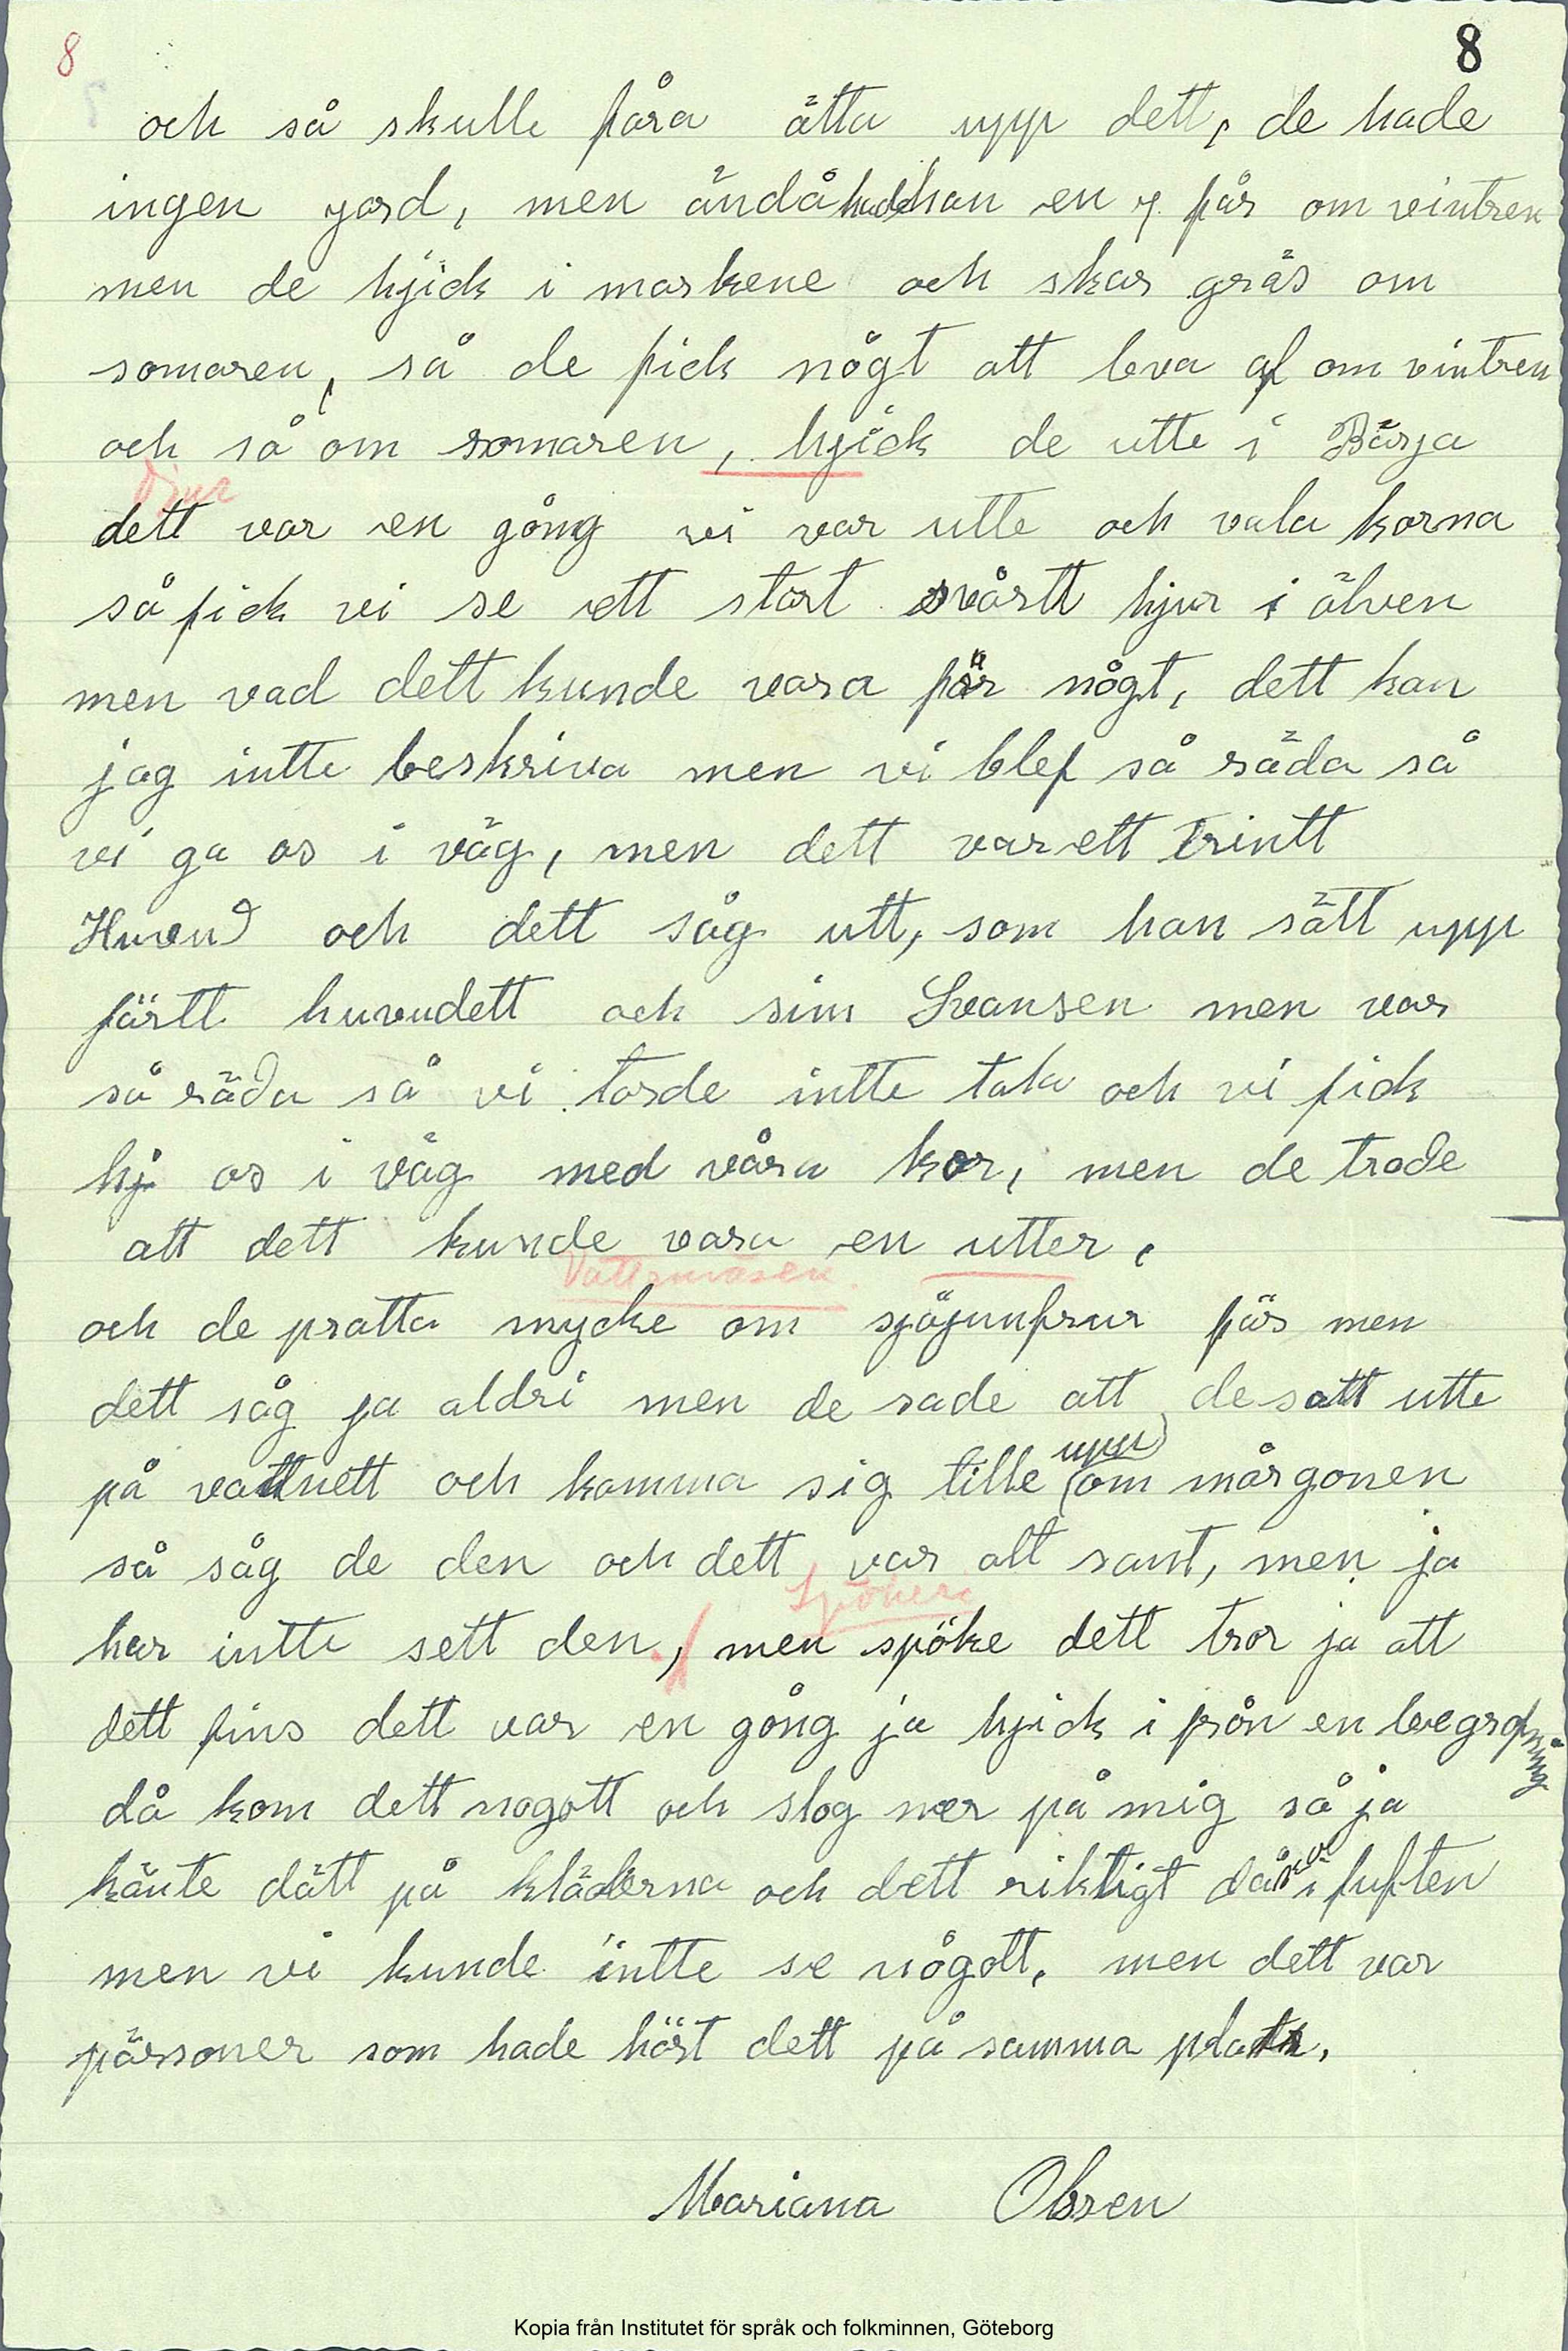 8 8
och så skulle fåra ätta upp dett, de hade
ingen jord, men ändå hade han en 7 får om vintren
men de hjick i markene och skar gräs om
somaren, så de fick någt att leva af om vintren
och så om somaren, hjick de utte i Bärja
Djur
dett var en gång vi var utte och vala korna
så fick vi se ett stort svårtt hjur i älven
men vad dett kunde vara får någt, dett kan
jag intte beskriva men vi blef så räda så
vi ga os i väg, men dett var ett trintt
Huvud och dett såg utt, som han sätt upp
färtt huvudett och sin Svansen men var
så räda så vi torde intte tala och vi fick
hj os i väg med våra kor, men de trode
att dett kunde vara en utter,
Vattenväsen.
och de pratta mycke om sjöjunfrur för men
dett såg ja aldri men de sade att de satt utte
på vattnett och kamma sig tille upp om mårgonen
så såg de den och dett var alt sant, men ja
Spöken
har intte sett den, men spöke dett tror ja att
dett fins dett var en gång ja hjick i från en begrafning
då kom dett nogott och slog ner på mig så ja
känte dätt på kläderna och dett riktigt då i luften
men vi kunde intte se någott, men dett var
pärsoner som hade hört dett på samma plats.
Mariana Olsen
Kopia från Institutet för språk och folkminnen, Göteborg